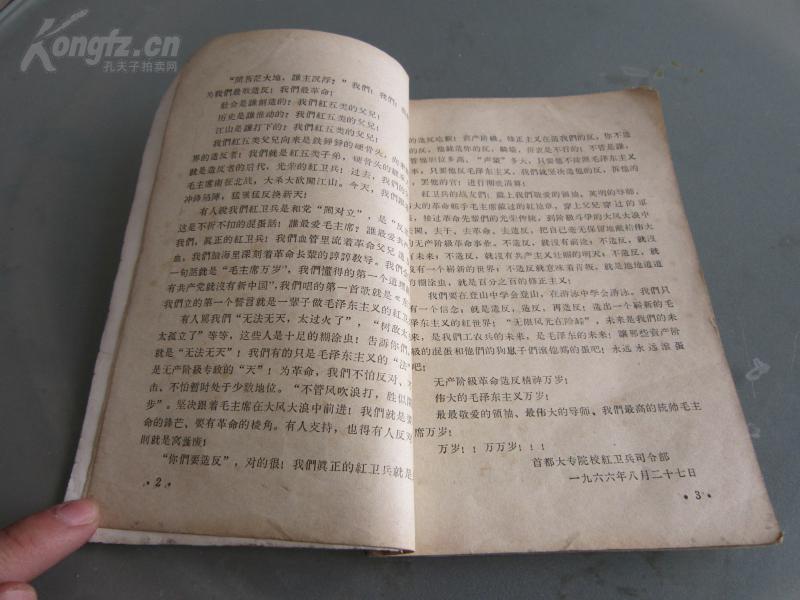 Kongfz.cn
孔夫子拍卖网
“問苍茫大地，誰主沉浮？”我們！我們！
为我們最敢造反！我們最革命！
社会是誰創造的？我們紅五类的父兄！
历史是誰推动的？我們紅五类的父兄！
江山是誰打下的？我們紅五类的父兄！
我們紅五类父兄向来是鉄錚錚的硬骨头，向来
界的造反者！我們就是紅五类子弟，硬骨头的
就是造反者的后代，光荣的紅卫兵！过去，我們
毛主席南征北战，大杀大砍閙江山。今天，我們
冲鋒陷陣，猛張猛反换新天！
有人說我們紅卫兵是和党“閙对立”，是“反
这是不折不扣的混蛋話！誰最爱毛主席？誰最爱
我們，眞正的紅卫兵！我們血管里流着革命父兄
血，我們脑海里深刻着革命长輩的諄諄教导。我們
一句話就是“毛主席万岁”，我們懂得的第一个道理
有共产党就沒有新中国”，我們唱的第一首歌就是“
我們立的第一个誓言就是一輩子做毛泽东主义的紅卫
有人駡我們“无法无天，太过火了”，“树敌太
太孤立了”等等，这些人是十足的糊涂虫！告訴你們
就是“无法无天”！我們有的只是毛泽东主义的“法”
是无产阶級专政的“天”！为革命，我們不怕反对、不
击、不怕暂时处于少数地位。“不管风吹浪打，胜似
步”。坚决跟着毛主席在大风大浪中前进！我們就是要
命的鋒芒、要有革命的棱角。有人支持，也得有人反对
則就是窝蘯废！
“你們要造反”，对的很！我們眞正的紅卫兵就是
·2·
的造反吃駡！資产阶級、修正主义在造我們的反，你不造
的反，他就造你的反，躺墙，折衷是不行的！不管是誰，
管他职位多高、“声望”多大，只要他不按毛泽东主义
，只要他反对毛泽东主义，我們就坚决造他的反，拆他的
，罢他的官！进行彻底清算！
紅卫兵的战友們！戴上我們敬爱的领袖，英明的导师，
大的革命舵手毛主席戴过的紅袖章，穿上父兄穿过的軍
，接过革命先輩們的光荣传統，到阶級斗爭的大风大浪中
閙，去干，去革命，去造反，把自己毫无保留地献給伟大
的无产阶級革命事业。不造反，就沒有前途；不造反，就沒
有未来！不造反就沒有共产主义社会壮丽的明天；不造反，
沒有一个崭新的世界；不造反就意味着背叛，就是地地道道
的糊涂虫，就是百分之百的修正主义！
我們要在登山中学会登山，在游泳中学会游泳。我們只
有一个信念，就是造反，造反，再造反！造出一个崭新的毛
泽东主义的紅世界！“无限风光在险峰”，未来是我們的未
来，是我們工农兵的未来，是毛泽东的未来！讓那些資产阶
級的混蛋和他們的狗崽子們滚他媽的蛋吧！永远永远滚蛋
吧！
无产阶級革命造反精神万岁！
伟大的毛泽东主义万岁！
最最敬爱的領袖、最伟大的导师、我們最高的統帅毛主
席万岁！
万岁！！万万岁！！！
首都大专院校紅卫兵司令部
一九六六年八月二十七日
·3·